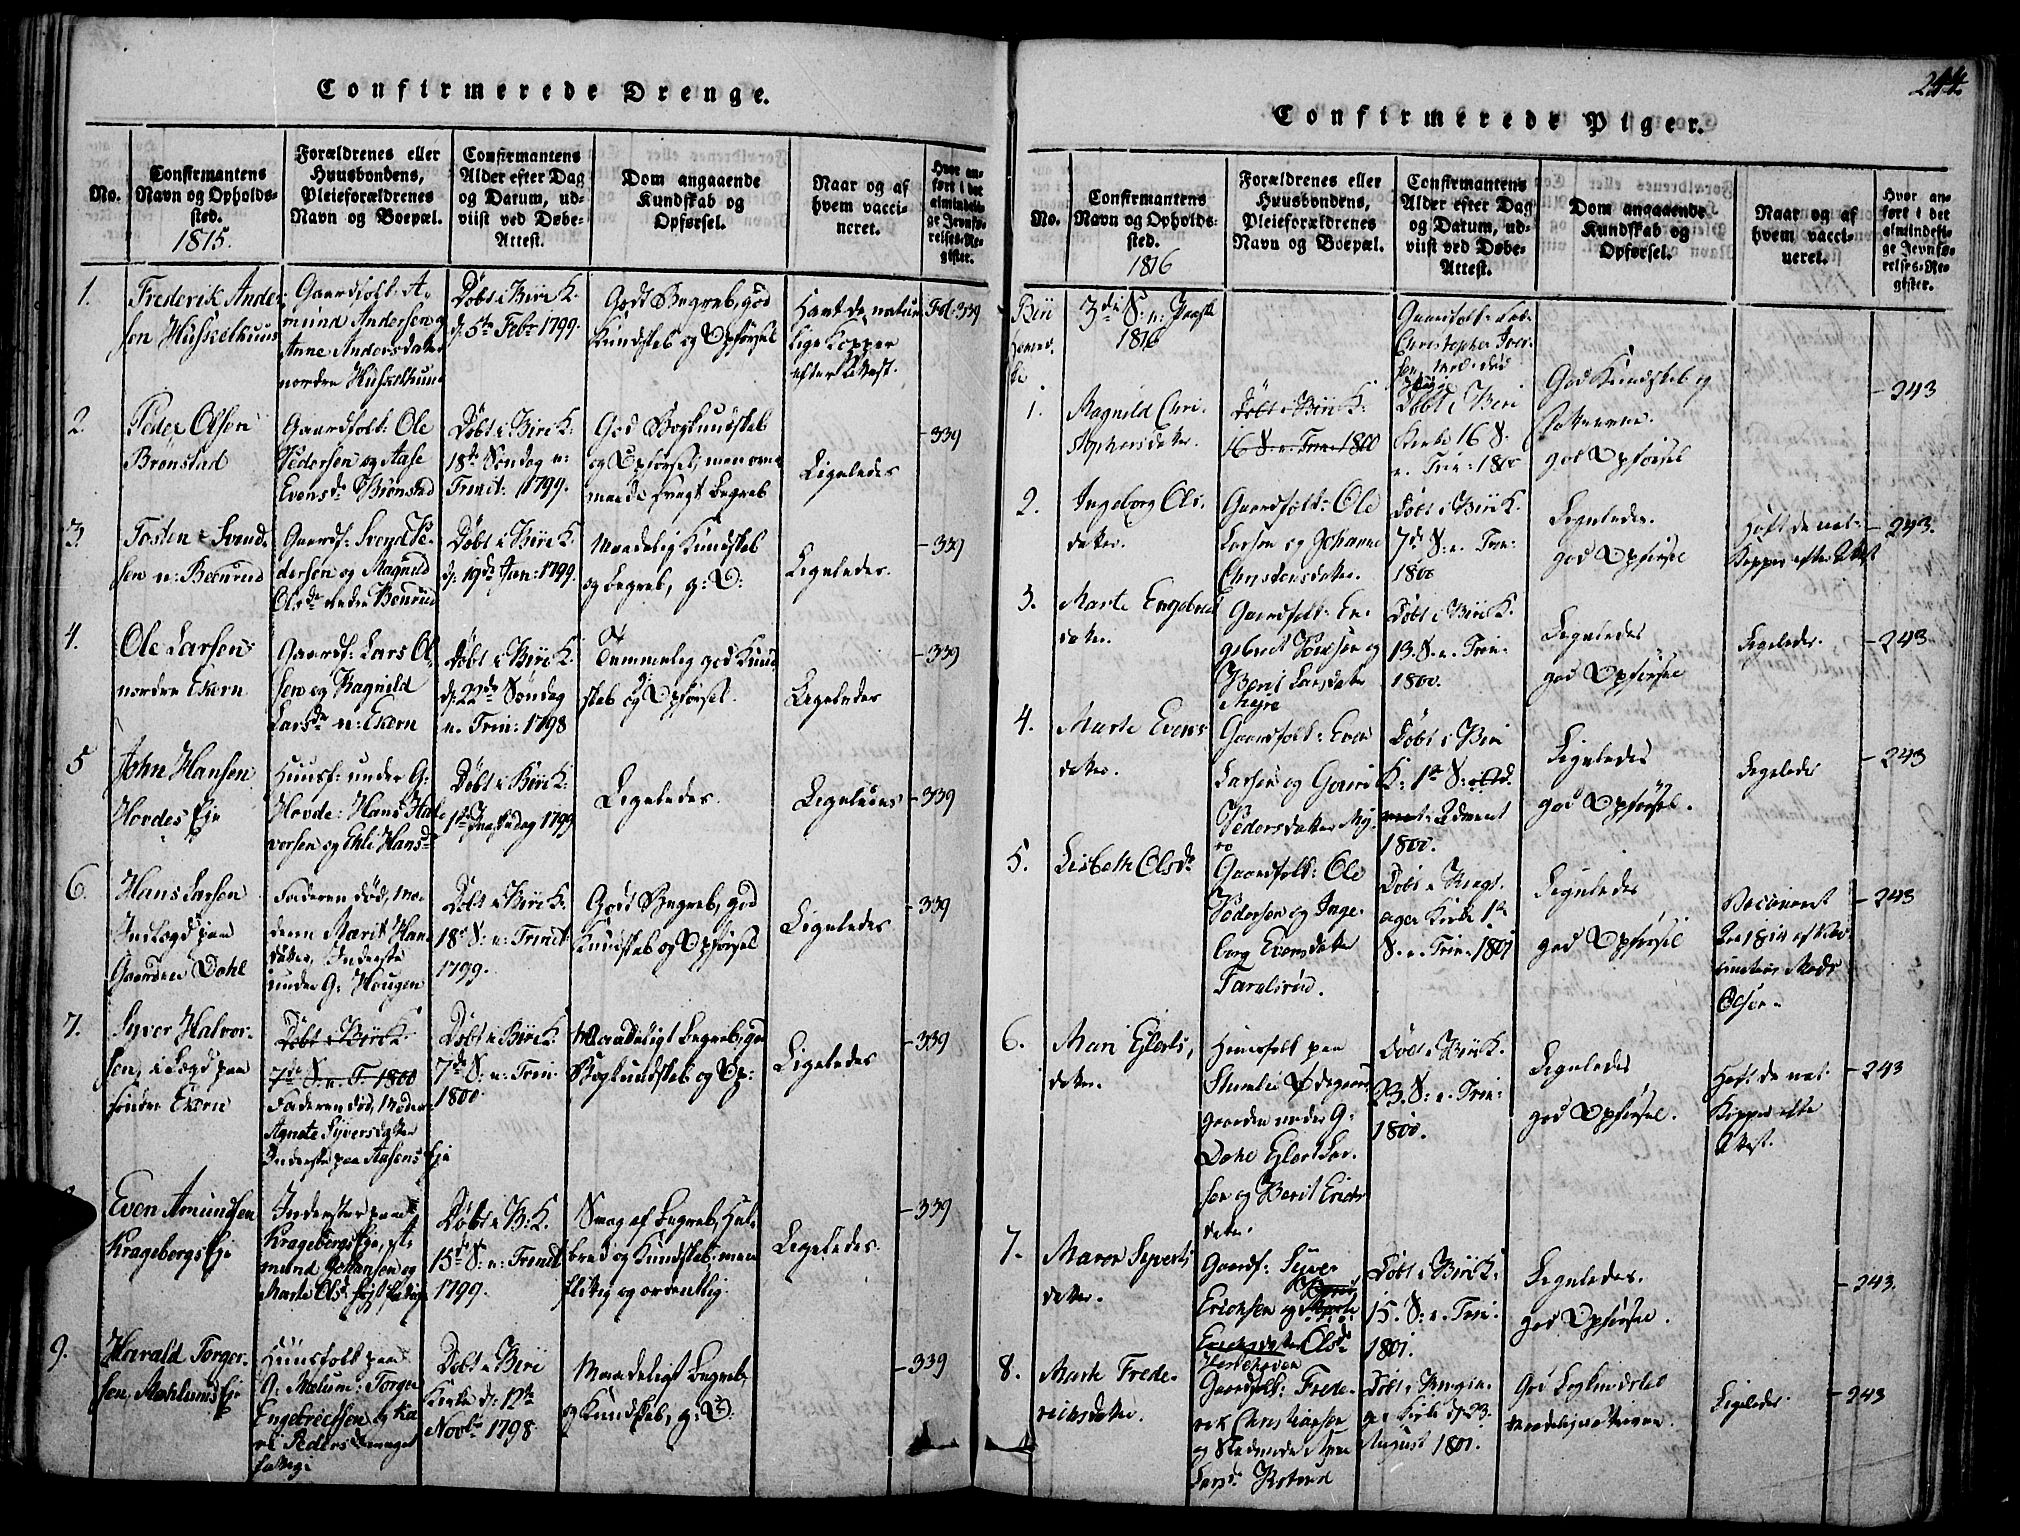 Confirmerede Drenge.
No.
Confirmantens
Navn og Opholds-
sted.
1815.
Forældrenes eller
Huusbondens,
Pleieforældrenes
Navn og Boepæl.
Confirmantens
Alder efter Dag
og Datum, ud-
viist ved Døbe-
Attest.
Dom angaaende
Kundskab og
Opførsel.
Naar og af
hvem vacci-
neret.
Hvor an-
ført i det
almindeli-
ge Jevnfø-
relses-Re-
gister.
1.
Frederik Ander
sen Husselhuus
Gaardfolk: A-
mund Andersen og
Anne Andersdatter
nordre
Døbt i Biri K.
d. 5te Febr 1799.
Godt Begreb, god
Kundskab og Opførsel
Havt de natur
lige Kopper
efter Attest.
Fol. 339
2.
Peder Olsen
Brønstad
Gaardfolk: Ole
Pedersen og Aase
Evensdr Brønstad
Døbt i Biri K:
18de Søndag n:
Trinit: 1799.
God Bogkundskab
og Opførsel; men
svagt Begreb
Ligeledes
- 339
3.
Tosten Svend-
sen n: Beenrud
Gaardf: Svend Pe-
dersen og Magnild
Olsdr nedre Benrud
Døbt i Biri K.
d: 19de Jan: 1799.
Maadelig Kundskab
og Begreb, g: O:
Ligeledes.
- 339
4.
Ole Larsen
nordre Ekern
Gaardf: Lars Ol-
sen og Ragnild
Larsdr n: Ekern
Døbt i Biri K.
d: 22de Søndag
n. Trin: 1798
Temmelig god Kund
skab og Opførsel.
Ligeledes
- 339
5
John Hansen
Hovdes Eje
Huusf: under G:
Hovde: Hans Hal-
vorsen og Ehli Hansdr
Døbt i Biri K:
1ste Paaskedag 1799
Ligeledes.
Ligeledes
- 339
6.
Hans Larsen
Indlagd paa
Gaarden Dahl
Faderen død, Mo-
deren Marit Hans
datter, Inderste
under G: Haugen
Døbt i Biri K:
18de S: n: Trinit:
1799.
Godt Begreb, god
Kundskab og Opførsel
Ligeledes
- 339
7.
Syver Halvor-
sen, i Lægd paa
søndre Ekern
Døbt i Biri K.
7de S. n. T. 1800
Faderen død, Moder
Agnete Syversdatter
Inderste paa Aasens Eje
Døbt i Biri K.
7de S: n: Trin.
1800.
Maadeligt Begreb, god
Bogkundskab og Op:
Ligeledes
- 339
Even Amundsen
Kragebergs Eje
Inderster paa
Kragebergs Eje, A-
mund Johansen og
Marte Olsdr
Døbt i B: K.
15de S: n: Trinit
1799.
Svag af Begreb,
og Kundskab; men
flittig og ordentlig.
Ligeledes.
- 339
9.
Harald Torger-
sen, Mæhlums Eje
Huusfolk paa
G: Mælum: Torger
Engebretsen og Ka
ri Pedersdr meget
fattige
Døbt i Biri
Kirke d: 12te
Novbr 1798
Maadeligt Begreb,
og Kundskab, g: O:
- 339
244
Confirmerede Piger.
No.
Confirmantens
Navn og Opholds-
sted.
1816
Forældrenes eller
Huusbondens,
Pleieforældrenes
Navn og Boepæl.
Confirmantens
Alder efter Dag
og Datum, ud-
viist ved Døbe-
Attest.
Dom angaaende
Kundskab og
Opførsel.
Naar og af
hvem vacci-
neret.
Hvor an-
ført i det
almindeli-
ge Jevnfø-
relses-Re-
gister.
Biri
3die S: n: Paaske
1816
1.
Magnild Chri-
stophersdatter.
Døbt i Biri K:
16 S. n. Trin. 1800
Christopher Iver-
sen
Døbt i Biri
Kirke 16 S.
n. Trin: 1800
God Kundskab og
god Opførsel
- 243
2.
Ingeborg Ols-
datter.
Gaardfolk: Ole
Larsen og Johanne
Christensdatter.
Døbt i Biri K.
7de S: n. Trin:
1800
Ligeledes.
god Opførsel
Haft de nat:
Kopper efter Attest
- 243.
3.
Marte Engebret
datter.
Gaardfolk: En-
gebret Poulsen og
Berit Larsdatter
Døbt i Biri K.
13. S. n. Trin:
1800.
Ligeledes
god Opførsel
Ligeledes.
- 243
4.
Marte Evens
datter.
Gaardfolk: Even
Larsen og Gouri
Pedersdatter My-
re
Døbt i Biri
K: 1te S:
Advent
1800.
Ligeledes
god Opførsel.
Ligeledes
- 243
5.
Lisbeth Olsdr
Gaardfolk: Ole
Pedersen og Inge-
borg Evensdatter
Døbt i Rings-
ager Kirke 1te
S. n. Trin. 1801
Ligeledes
god Opførsel
Vaccineret
den 1814 af Vac-
cinateur Mads
Olsen.
- 243
6.
Mari Ejlerts,
datter.
Huusfolk paa
Ødegaard
gaarden under G:
Dahl Ejlert Lar-
sen og Berit Erichs
datter
Døbt i Biri K.
23. S: n. Trin:
1800.
Ligeledes
god Opførsel.
Haft de nat.
Kopper efter
Attest.
- 243
7.
Maren Syverts
datter.
Gaardf: Syver
Erichsen og
Olsdr
Døbt i Biri K:
15. S. n. Trin:
1801.
Ligeledes.
god Opførsel.
- 243.
8.
Marte Frede-
richsdatter.
Gaardfolk: Frede-
rik Christiansen
Larsdr
Døbt i Ringsa-
ger Kirke d. 23.
August 1801.
God Bogkundskab
Ligeledes
- 243